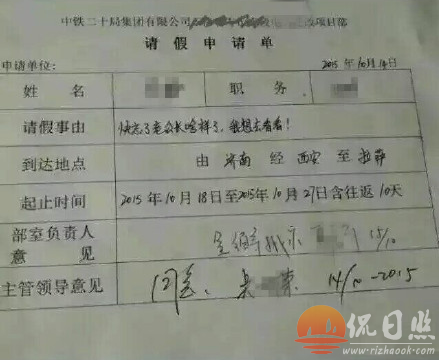 中铁二十局集团有限公司 项目部
请假申请单
申请单位： 2015年10月14日
姓名 职务
请假事由 快忘了老公长啥样了，我想去看看！
到达地点 由 济南 经 西安 至 拉萨
起止时间 2015年10月18日至2015年10月27日含往返10天
部室负责人意见 15/10
主管领导意见 同意。 14/10-2015
侃日照
www.rizhaook.com